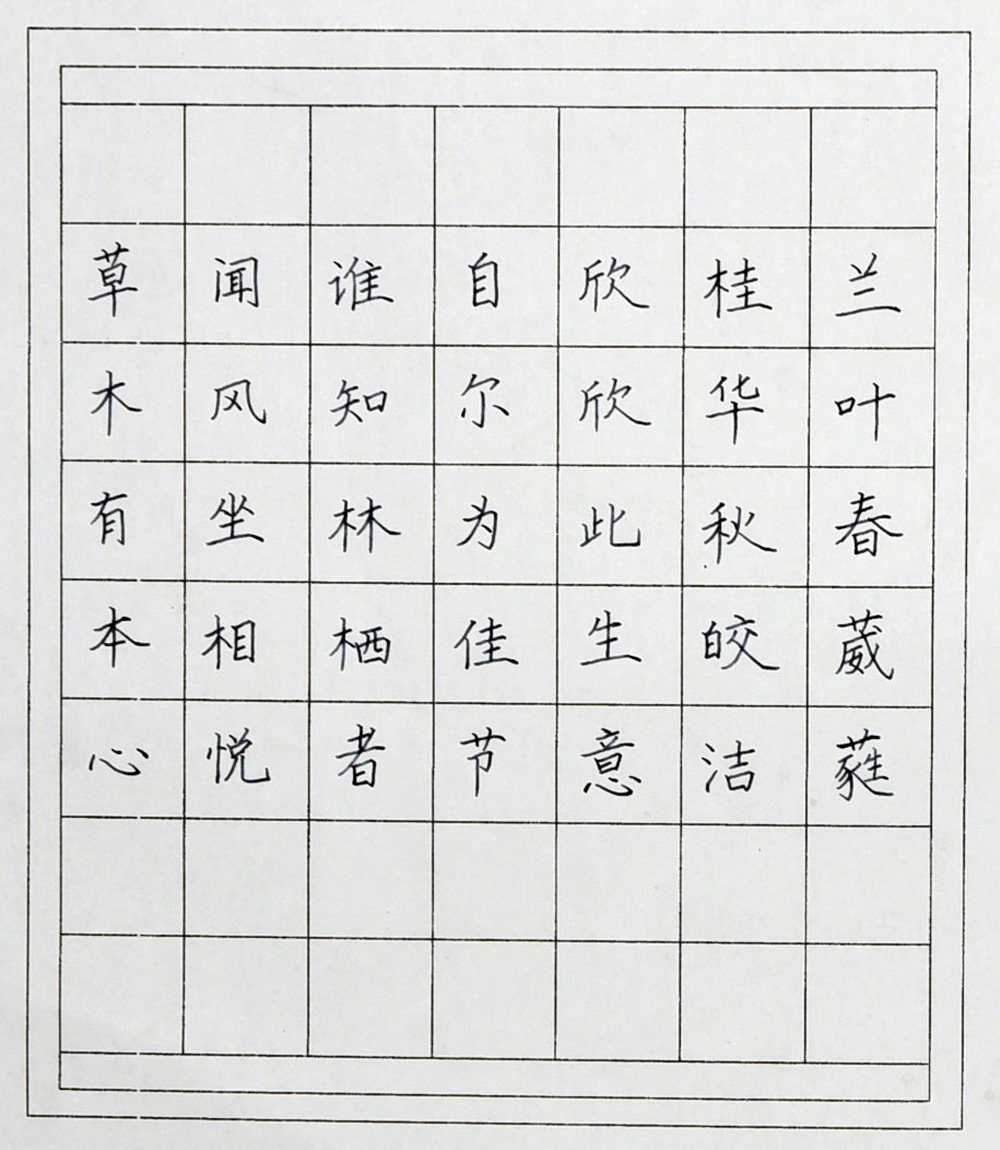 兰叶春葳蕤
桂华秋皎洁
欣欣此生意
自尔为佳节
谁知林栖者
闻风坐相悦
草木有本心